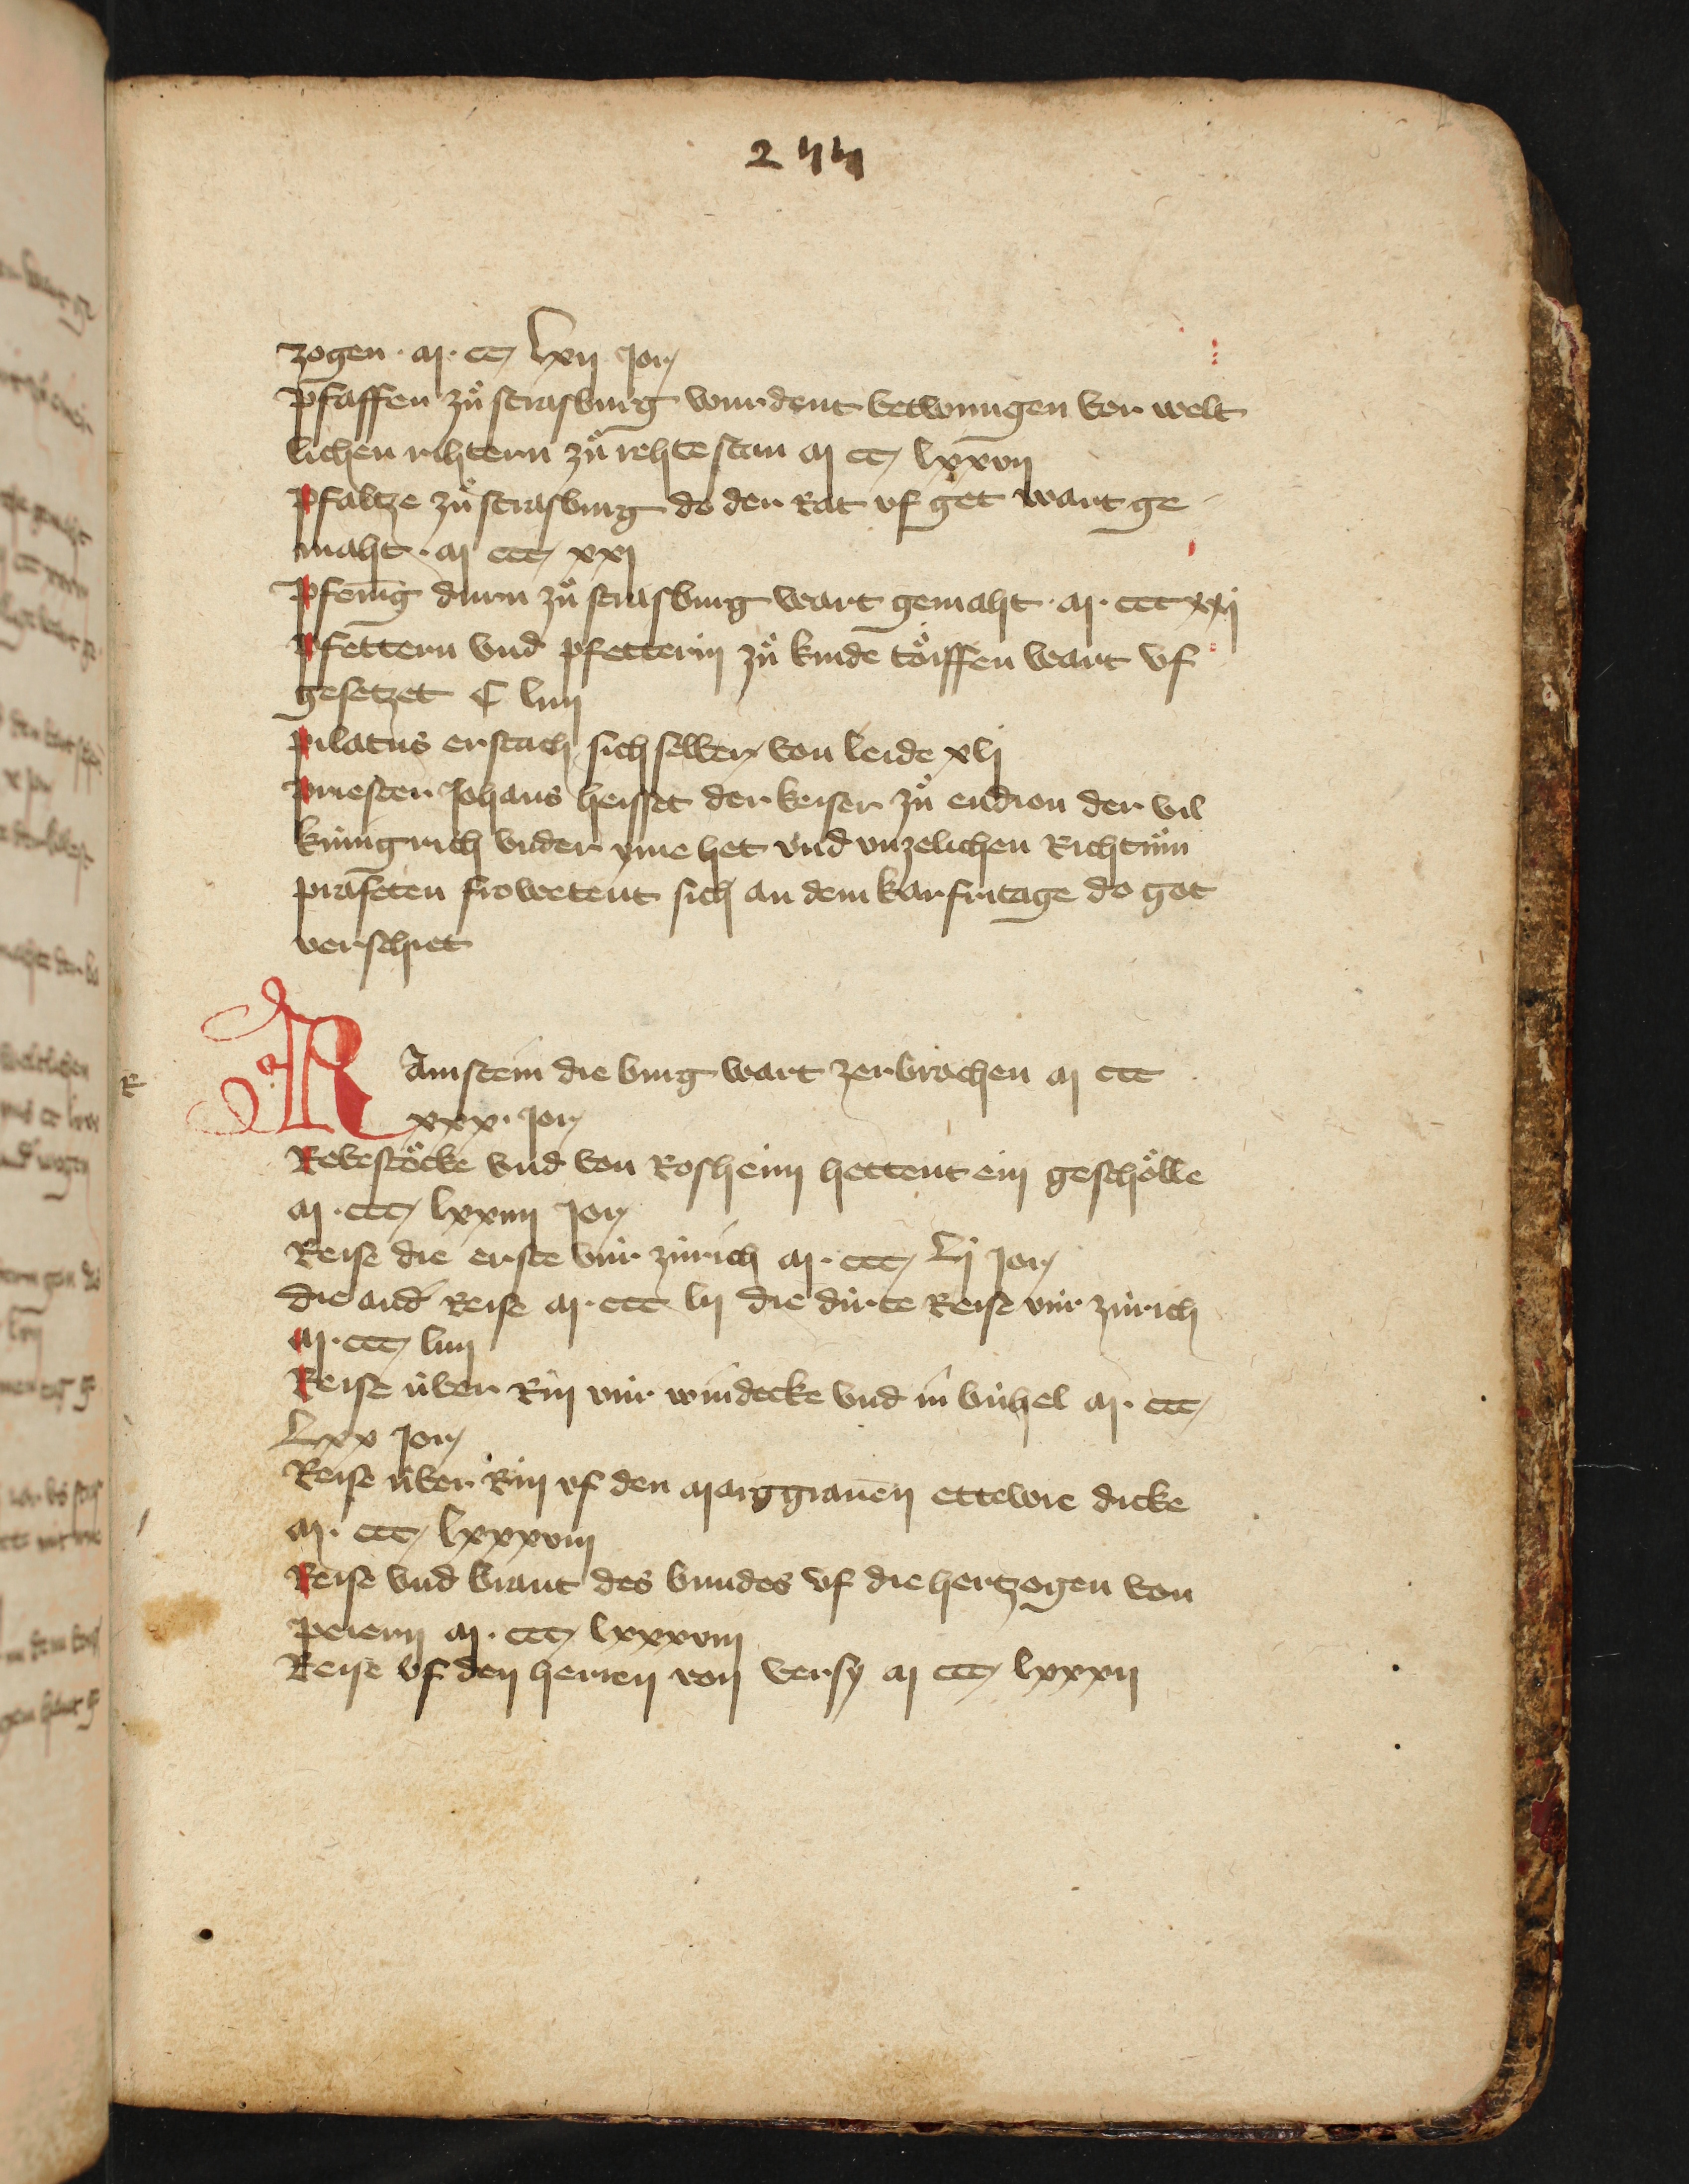 zogen · M · cc lxii Jor
Pfaffen zuͦ strasburg wurdent betwungen vor welt
lichen rihtern zuͦ rehte stan M cc lxxvii
Pfaltze zuͦ strasburg do der Rat vf get wart ge
maht · M ccc xxi
Pfenīg durn zuͦ strasburg wart gemaht · M · ccc xxi
Pfettern vnd pfetterin zuͦ kinde toͤiffen wart vf
gesetzet C liiii
Pilatus erstach sich selber von leide xli
Priester Johans heisset der keiser zuͦ endion der vil
kúnigrich vnder yme het vnd vnzelichen Richtuͦm
prafeten frowetent sich an dem karfritage do got
verschiet
R
RAmstein die burg wart zerbrochen M ccc
xxx · Jor
Rebestoͤcke vnd von Rosheim hettent ein geschoͤlle
M · ccc lxxiiii Jor
Reise die erste vúr zúrich M · ccc Li Jor
die and' Reise M · ccc lii die dirte Reise vúr zúrich
M · ccc liiii
Reise úber Rin vúr windecke vnd in búhel M · ccc
Lxx Jor
Reise úber Rin vf den Marggrauen ettewie dicke
M · ccc lxxxviii
Reise vnd brant des bundes vf die hertzogen von
Peiern M · ccc lxxxviii
Reise vf den herren von versy M ccc lxxxii